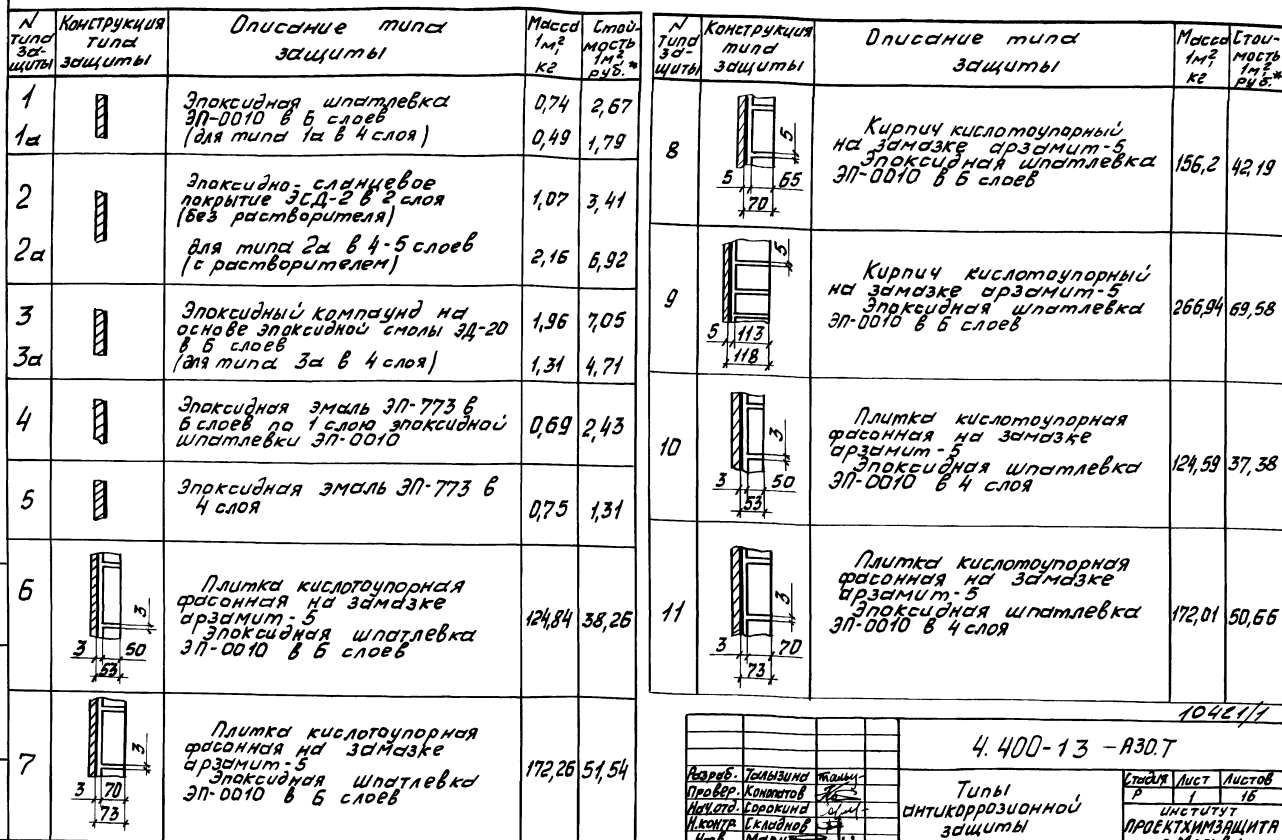 N типа защиты
Конструкция типа защиты
Описание типа защиты
Масса 1м², кг
Стоимость 1м² руб.*
1
Эпоксидная шпатлевка
ЭП-0010 в 6 слоев
0,74 2,67
1а
(для типа 1а в 4 слоя)
0,49 1,79
2
Эпоксидно-сланцевое
покрытие ЭСД-2 в 2 слоя
(без растворителя)
1,07 3,41
2а
для типа 2а в 4-5 слоев
(с растворителем)
2,16 6,92
3
Эпоксидный компаунд на
основе эпоксидной смолы ЭД-20
в 6 слоев
1,96 7,05
3а
(для типа 3а в 4 слоя)
1,31 4,71
4
Эпоксидная эмаль ЭП-773 в
6 слоев по 1 слою эпоксидной
шпатлевки ЭП-0010
0,69 2,43
5
Эпоксидная эмаль ЭП-773 в
4 слоя
0,75 1,31
6
3
3 50
53
Плитка кислотоупорная
фасонная на замазке
арзамит-5
Эпоксидная шпатлевка
ЭП-0010 в 6 слоев
124,84 38,26
7
3
3 70
73
Плитка кислотоупорная
фасонная на замазке
арзамит-5
Эпоксидная шпатлевка
ЭП-0010 в 6 слоев
172,26 51,54
N типа защиты
Конструкция типа защиты
Описание типа защиты
Масса 1м², кг
Стоимость 1м² руб.*
8
5
5 65
70
Кирпич кислотоупорный
на замазке арзамит-5
Эпоксидная шпатлевка
ЭП-0010 в 6 слоев
156,2 42,19
9
5
5 113
118
Кирпич кислотоупорный
на замазке арзамит-5
Эпоксидная шпатлевка
ЭП-0010 в 6 слоев
266,94 69,58
10
3
3 50
53
Плитка кислотоупорная
фасонная на замазке
арзамит-5
Эпоксидная шпатлевка
ЭП-0010 в 4 слоя
124,59 37,38
11
3
3 70
73
Плитка кислотоупорная
фасонная на замазке
арзамит-5
Эпоксидная шпатлевка
ЭП-0010 в 4 слоя
172,01 50,66
10421/1
4.400-13 -АЗО.Т
Разраб. Талызина
Провер. Конопатов
Нач.отд. Сорокина
Н.контр. Складнов
Типы
антикоррозионной
защиты
Стадия Лист Листов
Р 1 16
институт
ПРОЕКТХИМЗАЩИТА